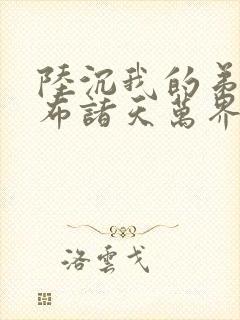 陸沉我的弟
布諸天萬界
洛雲戈